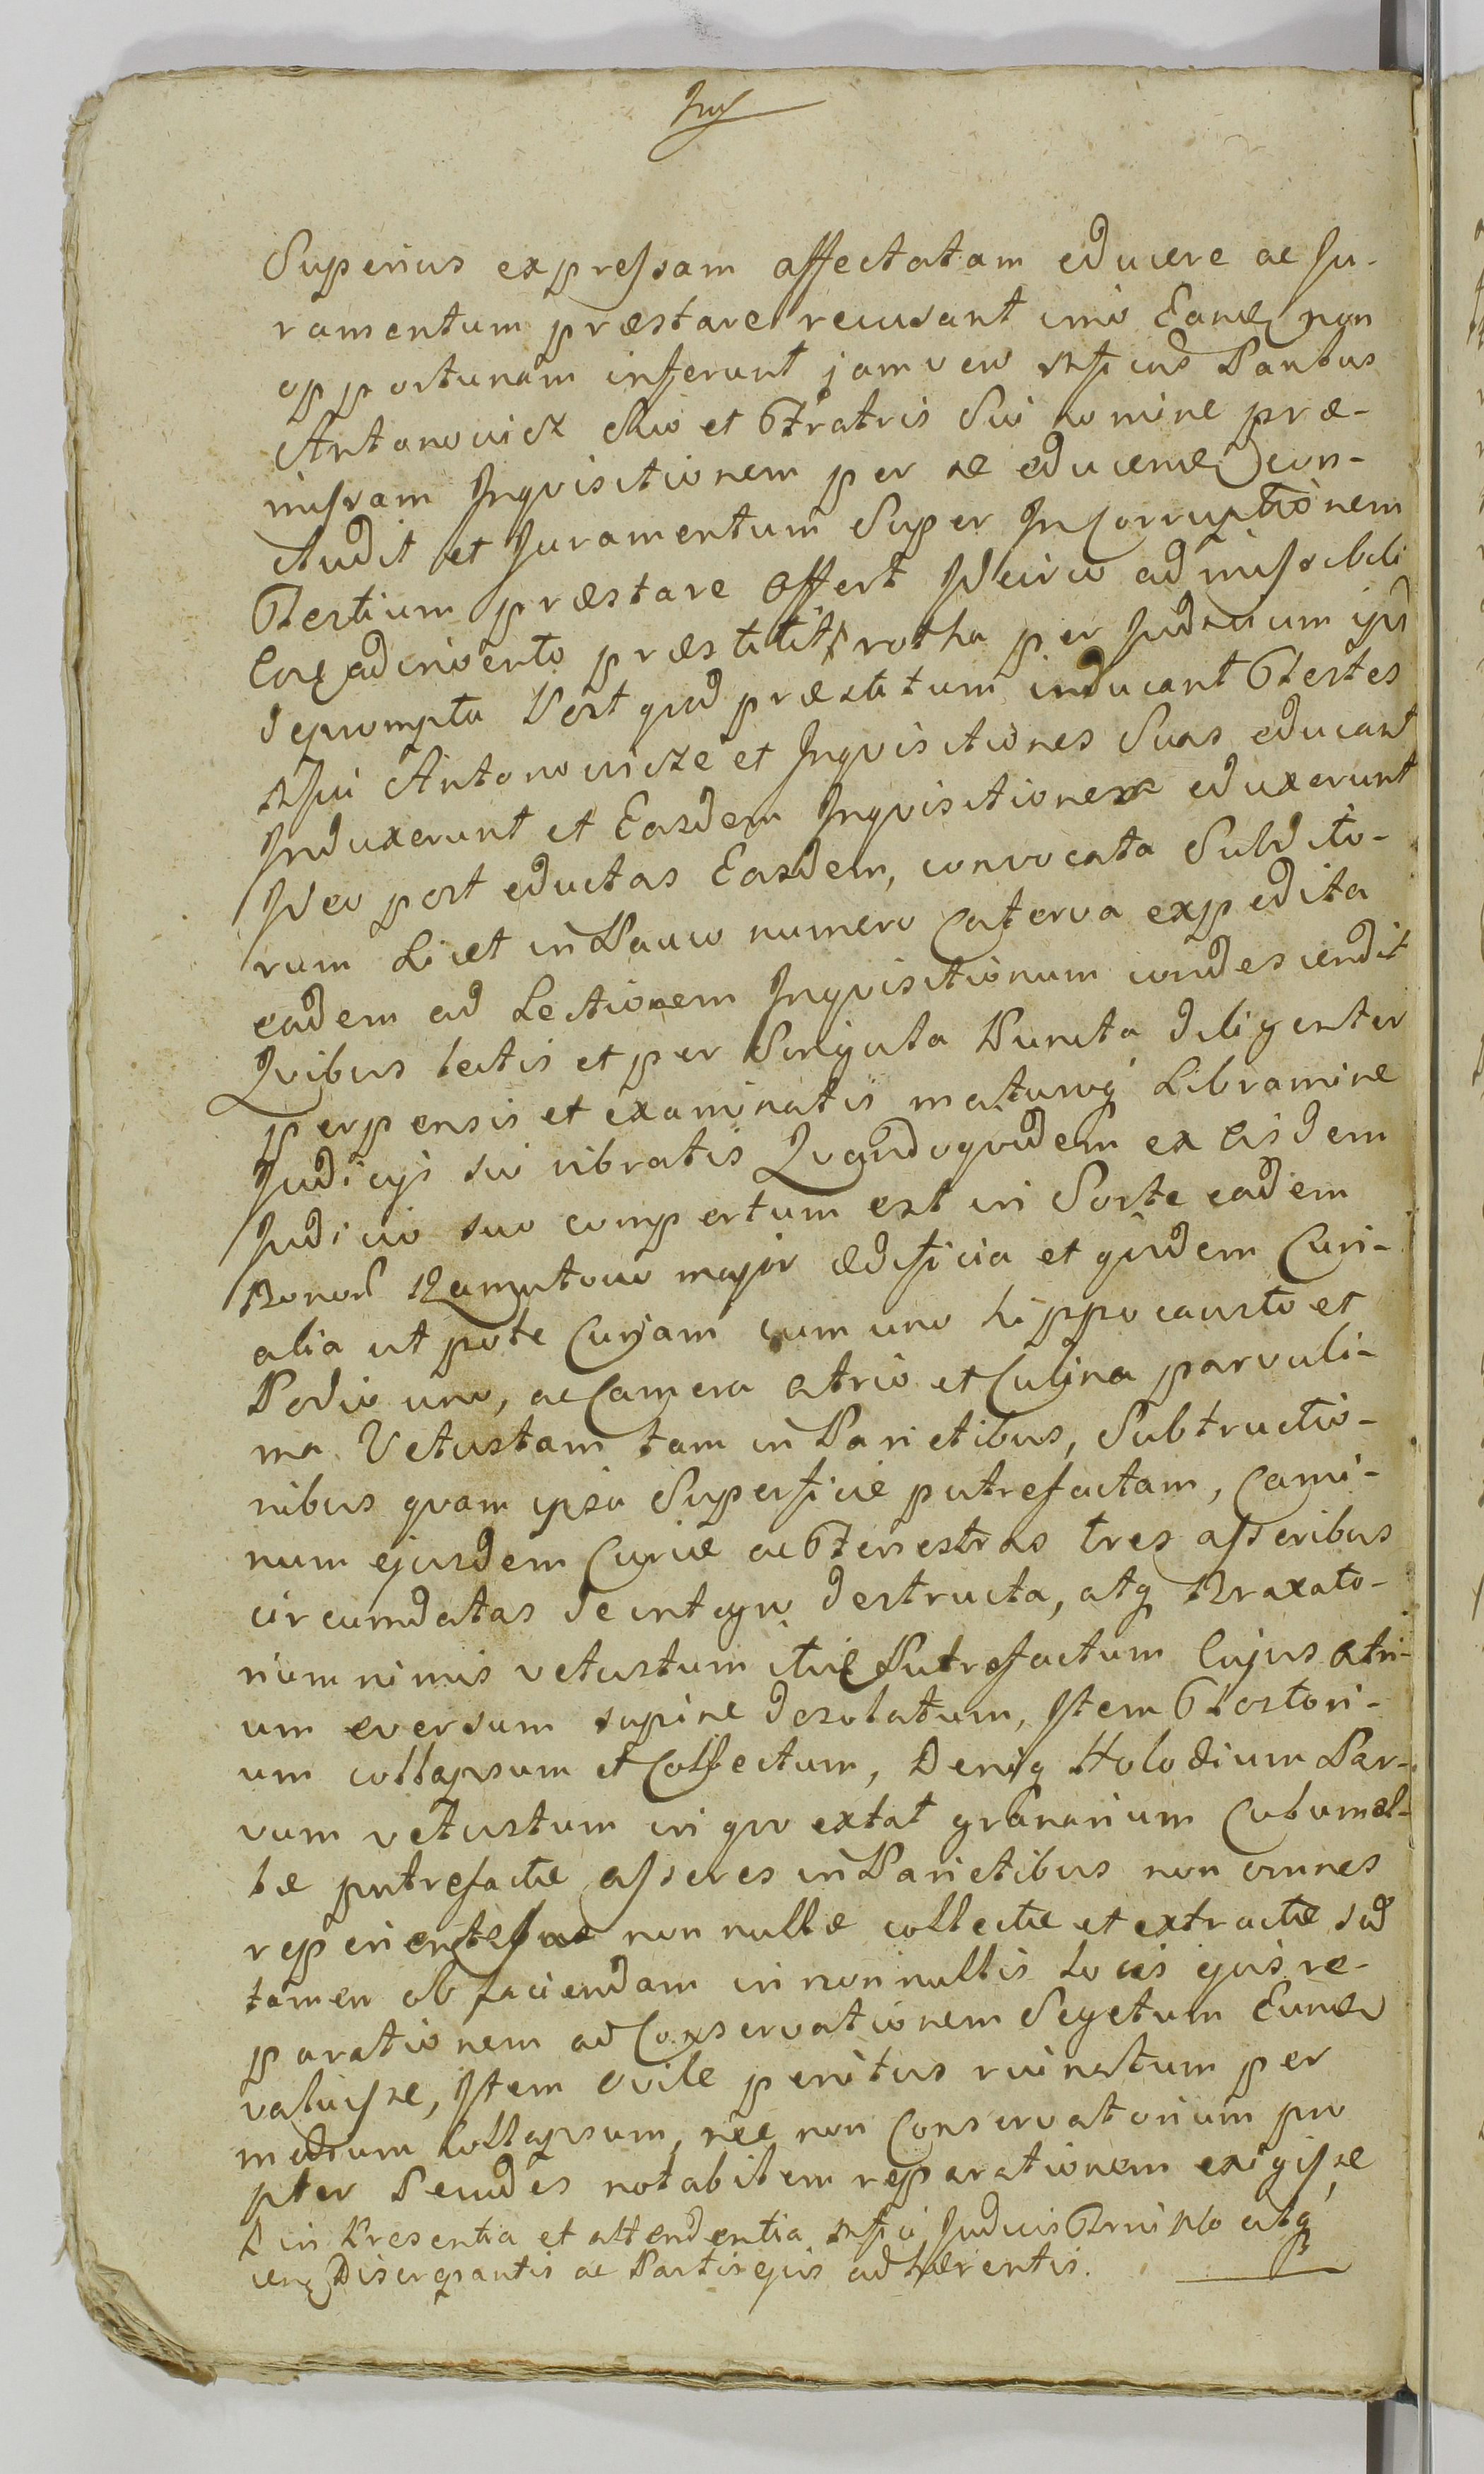 Superius expressam affectatam educere ac Ju-
ramentum præstare recusant imo Eamq non
opportunam inferunt jam vero Msficus Paulus
Antonowicz Suo et Fratris Sui nomine præ-
missam Inqvisitionem per se educendę con-
cludit et Juramentum Super Incorruptionem
Testium præstare offert Ideirco admissibili
Eoq adinvento præstitit rotha per Judicium ipsi
deprompta Post qvod præstitum inducant Testes
Msfici Antonowicze et Inqvisitiones Suas educant
Induxerunt et Easdem Inqvisitiones eduxerunt
Ideo post eductas Easdem, convocata Subdito-
rum Licet in Pauco numero Caterva expedita
eadem ad Lectionem Inqvisitionum condescendit
Qvibus lectis et per Singula Puncta diligenter
perpensis et examinatis maturoq Libramine
Judicij sui vibratis Qvandoqvidem ex eisdem
Judicio suo compertum est in Sorte eadem
Bonor Ramutowo major ædificia et qvidem Curi-
alia ut pote Curiam cum uno hippocausto et
Podio uno, ac Camera atrio et Culina parvuli-
ma Vetustam tam in Parietibus, Subtructio-
nibus qvam ipsa Superficie putrefactam, Cami-
num ejusdem Curiæ ac Fenestras tres asseribus
circumdatas de integro destructa, atq Braxato-
rium nimis vetustum itidę Putrefactum Cujus atri-
um eversum supine desolatum, Item Tostori-
um collapsum et Collectum, Deniq Holodium Par-
vum vetustum in qvo extat granarium Culumel-
læ putrefactæ asseres in Parietibus non omnes
reperientes nonnullæ collectæ et extractæ sed
tamen ob faciendam in nonnullis locis ejus re-
parationem ad Conservationem Segetum Eundę
valuisse, Item Ovile penitus ruinatum per
medium Collapsum, nec non Conservatorium pro
pter Pecudes notabilem reparationem exigisse
in Presentia et attendentia Msfici Judicis atq
Discrepantis ac Partis ejus adhærentis.